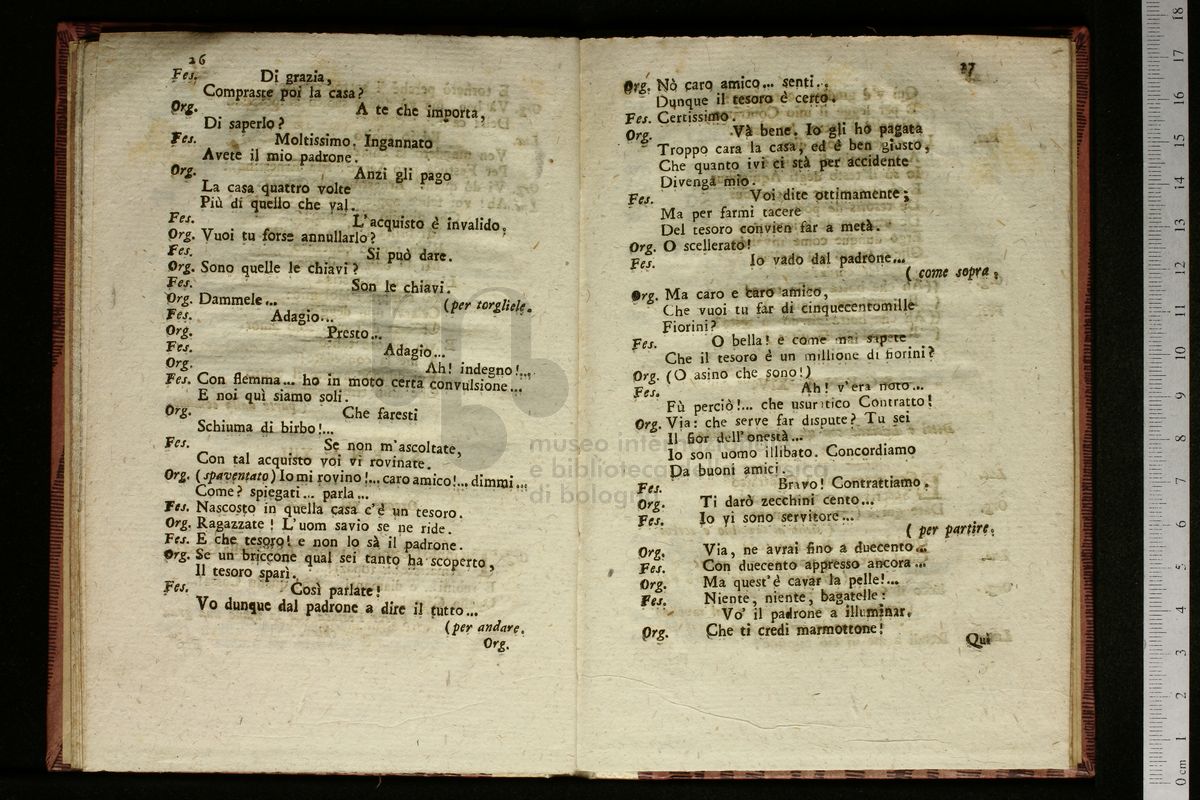 26
Fes. Di grazia,
Compraste poi la casa?
Org. A te che importa,
Di saperlo?
Fes. Moltissimo. Ingannato
Avete il mio padrone.
Org. Anzi gli pago
La casa quattro volte
Più di quello che val.
Fes. L'acquisto è invalido.
Org. Vuoi tu forse annullarlo?
Fes. Si può dare.
Org. Sono quelle le chiavi?
Fes. Son le chiavi.
Org. Dammele... (per torgliele.
Fes. Adagio...
Org. Presto...
Fes. Adagio...
Org. Ah! indegno!...
Fes. Con flemma... ho in moto certa convulsione...
E noi quì siamo soli.
Org. Che faresti
Schiuma di birbo!...
Fes. Se non m'ascoltate,
Con tal acquisto voi vi rovinate.
Org. (spaventato) Io mi rovino!... caro amico!... dimmi...
Come? spiegati... parla...
Fes. Nascosto in quella casa c'è un tesoro.
Org. Ragazzate! L'uom savio se ne ride.
Fes. E che tesoro! e non lo sà il padrone.
Org. Se un briccone qual sei tanto ha scoperto,
Il tesoro sparì.
Fes. Così parlate!
Vo dunque dal padrone a dire il tutto...
(per andare.
Org.
27
Org. Nò caro amico... senti...
Dunque il tesoro è certo.
Fes. Certissimo.
Org. Và bene. Io gli ho pagata
Troppo cara la casa; ed è ben giusto,
Che quanto ivi ci stà per accidente
Divenga mio.
Fes. Voi dite ottimamente;
Ma per farmi tacere
Del tesoro convien far a metà.
Org. O scellerato!
Fes. Io vado dal padrone...
(come sopra.
Org. Ma caro e caro amico,
Che vuoi tu far di cinquecentomille
Fiorini?
Fes. O bella! e come mai sapete
Che il tesoro è un millione di fiorini?
Org. (O asino che sono!)
Fes. Ah! v'era noto...
Fù perciò!... che usuratico Contratto!
Org. Via: che serve far dispute? Tu sei
Il fior dell'onestà...
Io son uomo illibato. Concordiamo
Da buoni amici.
Fes. Bravo! Contrattiamo.
Org. Ti darò zecchini cento...
Fes. Io vi sono servitore...
(per partire.
Org. Via, ne avrai fino a duecento...
Fes. Con duecento appresso ancora...
Org. Ma quest'è cavar la pelle!...
Fes. Niente, niente, bagatelle:
Vo' il padrone a illuminar.
Org. Che ti credi marmottone!
Quì
museo inter
e biblioteca
di bologn
0 cm 1 2 3 4 5 6 7 8 9 10 11 12 13 14 15 16 17 18